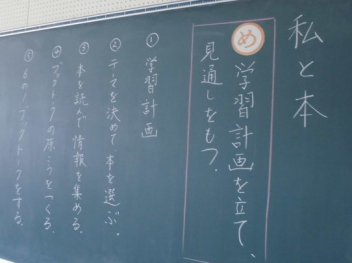 私と本
め 学習計画を立て、
見通しをもつ。
① 学習計画
② テーマを決めて本を選ぶ。
③ 本を読んで情報を集める。
④ ブックトークの原こうをつくる。
⑤ ブックトークをする。